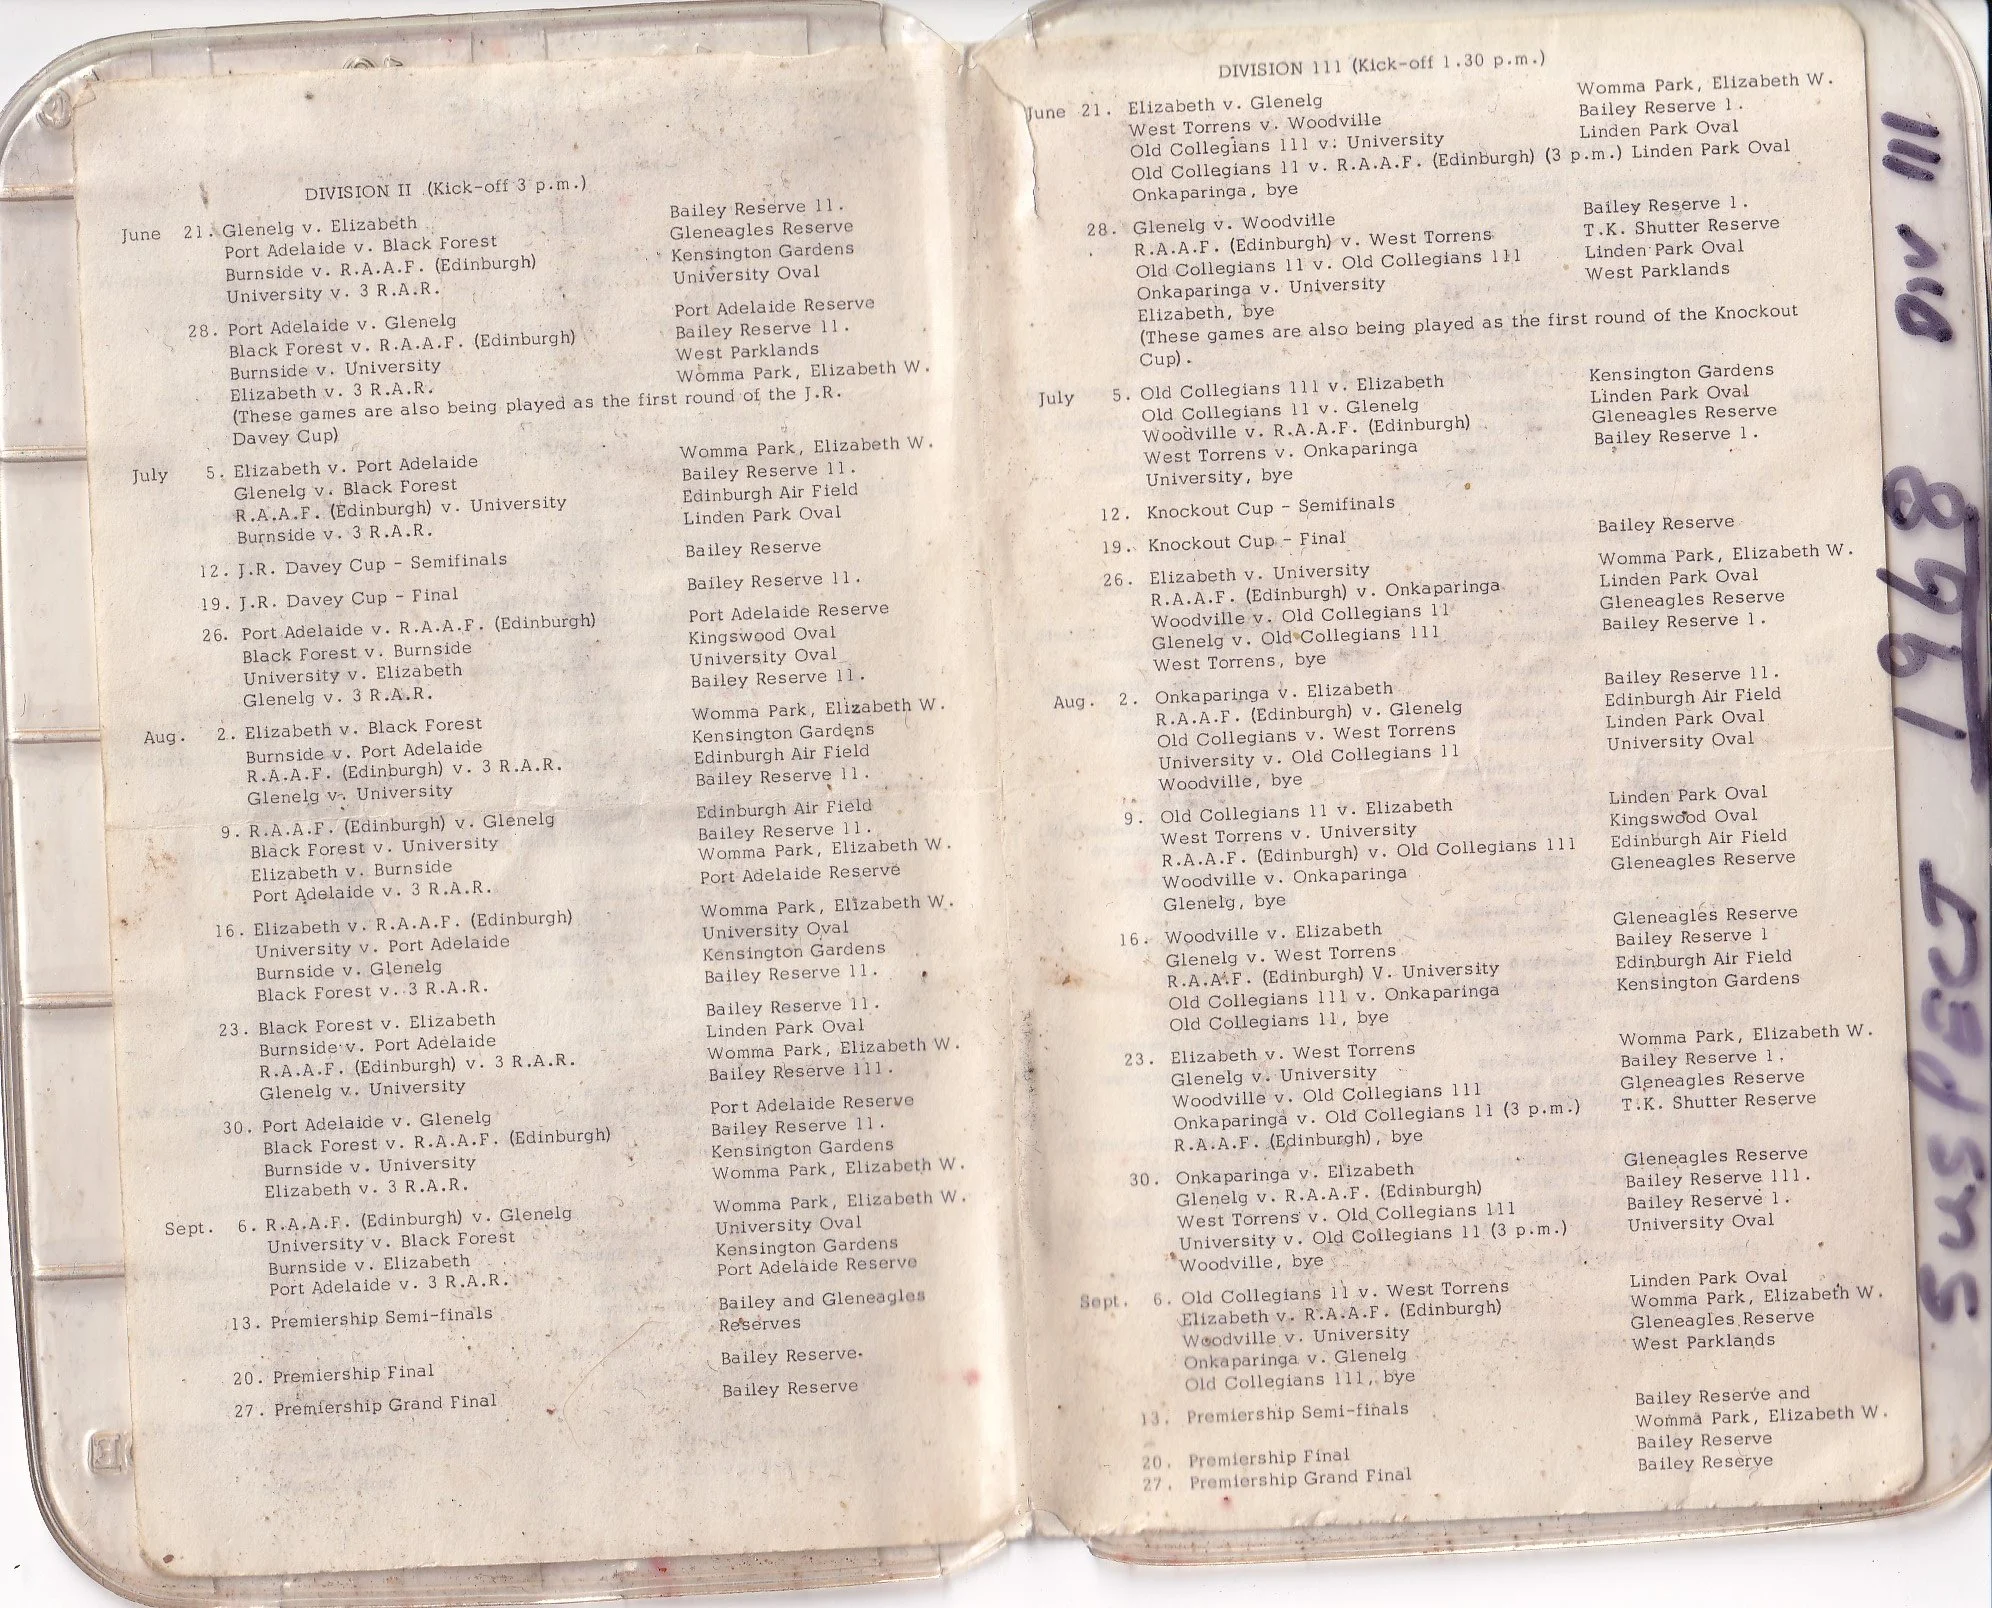 DIVISION II (Kick-off 3 p.m.)
June 21. Glenelg v. Elizabeth Bailey Reserve 11.
Port Adelaide v. Black Forest Gleneagles Reserve
Burnside v. R.A.A.F. (Edinburgh) Kensington Gardens
University v. 3 R.A.R. University Oval
28. Port Adelaide v. Glenelg Port Adelaide Reserve
Black Forest v. R.A.A.F. (Edinburgh) Bailey Reserve 11.
Burnside v. University West Parklands
Elizabeth v. 3 R.A.R. Womma Park, Elizabeth W.
(These games are also being played as the first round of the J.R.
Davey Cup)
July 5. Elizabeth v. Port Adelaide Womma Park, Elizabeth W.
Glenelg v. Black Forest Bailey Reserve 11.
R.A.A.F. (Edinburgh) v. University Edinburgh Air Field
Burnside v. 3 R.A.R. Linden Park Oval
12. J.R. Davey Cup - Semifinals Bailey Reserve
19. J.R. Davey Cup - Final Bailey Reserve 11.
26. Port Adelaide v. R.A.A.F. (Edinburgh) Port Adelaide Reserve
Black Forest v. Burnside Kingswood Oval
University v. Elizabeth University Oval
Glenelg v. 3 R.A.R. Bailey Reserve 11.
Aug. 2. Elizabeth v. Black Forest Womma Park, Elizabeth W.
Burnside v. Port Adelaide Kensington Gardens
R.A.A.F. (Edinburgh) v. 3 R.A.R. Edinburgh Air Field
Glenelg v. University Bailey Reserve 11.
9. R.A.A.F. (Edinburgh) v. Glenelg Edinburgh Air Field
Black Forest v. University Bailey Reserve 11.
Elizabeth v. Burnside Womma Park, Elizabeth W.
Port Adelaide v. 3 R.A.R. Port Adelaide Reserve
16. Elizabeth v. R.A.A.F. (Edinburgh) Womma Park, Elizabeth W.
University v. Port Adelaide University Oval
Burnside v. Glenelg Kensington Gardens
Black Forest v. 3 R.A.R. Bailey Reserve 11.
23. Black Forest v. Elizabeth Bailey Reserve 11.
Burnside v. Port Adelaide Linden Park Oval
R.A.A.F. (Edinburgh) v. 3 R.A.R. Womma Park, Elizabeth W.
Glenelg v. University Bailey Reserve 111.
30. Port Adelaide v. Glenelg Port Adelaide Reserve
Black Forest v. R.A.A.F. (Edinburgh) Bailey Reserve 11.
Burnside v. University Kensington Gardens
Elizabeth v. 3 R.A.R. Womma Park, Elizabeth W.
Sept. 6. R.A.A.F. (Edinburgh) v. Glenelg Womma Park, Elizabeth W.
University v. Black Forest University Oval
Burnside v. Elizabeth Kensington Gardens
Port Adelaide v. 3 R.A.R. Port Adelaide Reserve
13. Premiership Semi-finals Bailey and Gleneagles
Reserves
20. Premiership Final Bailey Reserve.
27. Premiership Grand Final Bailey Reserve
DIVISION 111 (Kick-off 1.30 p.m.)
June 21. Elizabeth v. Glenelg Womma Park, Elizabeth W.
West Torrens v. Woodville Bailey Reserve 1.
Old Collegians 111 v. University Linden Park Oval
Old Collegians 11 v. R.A.A.F. (Edinburgh) (3 p.m.) Linden Park Oval
Onkaparinga, bye
28. Glenelg v. Woodville Bailey Reserve 1.
R.A.A.F. (Edinburgh) v. West Torrens T.K. Shutter Reserve
Old Collegians 11 v. Old Collegians 111 Linden Park Oval
Onkaparinga v. University West Parklands
Elizabeth, bye
(These games are also being played as the first round of the Knockout
Cup).
July 5. Old Collegians 111 v. Elizabeth Kensington Gardens
Old Collegians 11 v. Glenelg Linden Park Oval
Woodville v. R.A.A.F. (Edinburgh) Gleneagles Reserve
West Torrens v. Onkaparinga Bailey Reserve 1.
University, bye
12. Knockout Cup - Semifinals
19. Knockout Cup - Final Bailey Reserve
26. Elizabeth v. University Womma Park, Elizabeth W.
R.A.A.F. (Edinburgh) v. Onkaparinga Linden Park Oval
Woodville v. Old Collegians 11 Gleneagles Reserve
Glenelg v. Old Collegians 111 Bailey Reserve 1.
West Torrens, bye
Aug. 2. Onkaparinga v. Elizabeth Bailey Reserve 11.
R.A.A.F. (Edinburgh) v. Glenelg Edinburgh Air Field
Old Collegians v. West Torrens Linden Park Oval
University v. Old Collegians 11 University Oval
Woodville, bye
9. Old Collegians 11 v. Elizabeth Linden Park Oval
West Torrens v. University Kingswood Oval
R.A.A.F. (Edinburgh) v. Old Collegians 111 Edinburgh Air Field
Woodville v. Onkaparinga Gleneagles Reserve
Glenelg, bye
16. Woodville v. Elizabeth Gleneagles Reserve
Glenelg v. West Torrens Bailey Reserve 1
R.A.A.F. (Edinburgh) V. University Edinburgh Air Field
Old Collegians 111 v. Onkaparinga Kensington Gardens
Old Collegians 11, bye
23. Elizabeth v. West Torrens Womma Park, Elizabeth W.
Glenelg v. University Bailey Reserve 1.
Woodville v. Old Collegians 111 Gleneagles Reserve
Onkaparinga v. Old Collegians 11 (3 p.m.) T.K. Shutter Reserve
R.A.A.F. (Edinburgh), bye
30. Onkaparinga v. Elizabeth Gleneagles Reserve
Glenelg v. R.A.A.F. (Edinburgh) Bailey Reserve 111.
West Torrens v. Old Collegians 111 Bailey Reserve 1.
University v. Old Collegians 11 (3 p.m.) University Oval
Woodville, bye
Sept. 6. Old Collegians 11 v. West Torrens Linden Park Oval
Elizabeth v. R.A.A.F. (Edinburgh) Womma Park, Elizabeth W.
Woodville v. University Gleneagles Reserve
Onkaparinga v. Glenelg West Parklands
Old Collegians 111, bye
13. Premiership Semi-finals Bailey Reserve and
Womma Park, Elizabeth W.
20. Premiership Final Bailey Reserve
27. Premiership Grand Final Bailey Reserve
SUSPECT 1968 DIV III